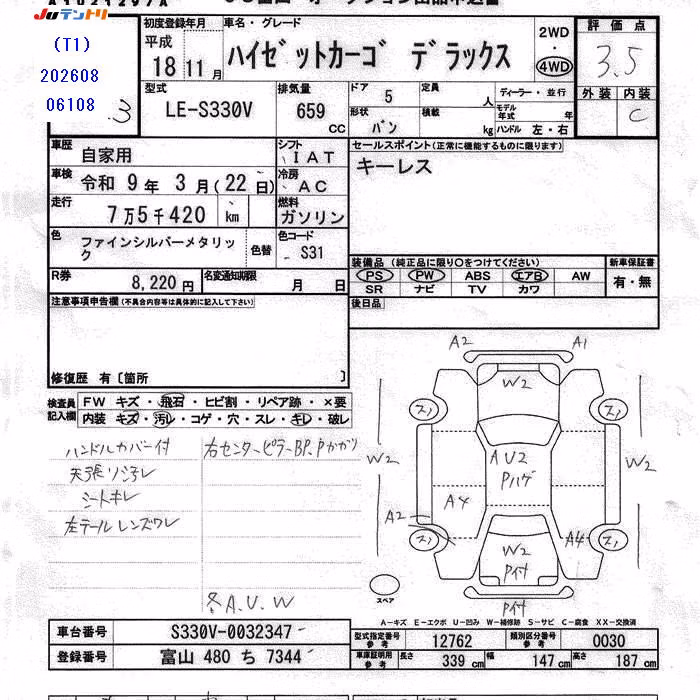 JUテントリ
(T1)
202608
06108
初度登録年月
平成
18 11 月
車名・グレード
ハイゼットカーゴ デラックス
2WD
・
4WD
評価点
3.5
外装 内装
C
型式
LE-S330V
排気量
659
CC
ドア
5
定員
人
形状
バン
積載
kg
ディーラー・並行
モデル年式 年
ハンドル 左・右
車歴
自家用
シフト
IAT
車検
令和 9年 3月(22日)
冷房
AC
走行
7万5千420 km
燃料
ガソリン
色
ファインシルバーメタリック
色替
色コード
S31
R券
8,220円
名変通知期限
月 日
セールスポイント(正常に機能するものに限ります)
キーレス
装備品(純正品に限り○をつけてください)
PS PW ABS エアB AW
SR ナビ TV カワ
新車保証書
有・無
後日品
注意事項申告欄(不具合内容等は具体的に記入して下さい)
修復歴 有〔箇所 〕
検査員記入欄
FW キズ・飛石・ヒビ割・リペア跡・×要
内装 キズ・汚レ・コゲ・穴・スレ・キレ・破レ
ハンドルカバー付
シートキレ
左テールレンズワレ
右センターピラーBP、Pカガリ
各A.U.W
A2 A1
W2
W2
AU2
Pハゲ
W2
A4
A2
A4
W2
P付
P付
スペア
A-キズ E-エクボ U-凹み W-補修跡 S-サビ C-腐食 XX-交換済
車台番号
S330V-0032347
登録番号
富山 480 ち 7344
型式指定番号
参考
12762
類別区分番号
参考
0030
車庫証明用
参考
長さ 339 cm 幅 147 cm 高さ 187 cm